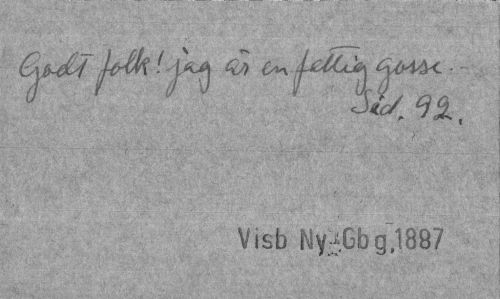 Godt folk! jag är en fattig gosse.
Sid. 92.
Visb Ny, Gbg, 1887